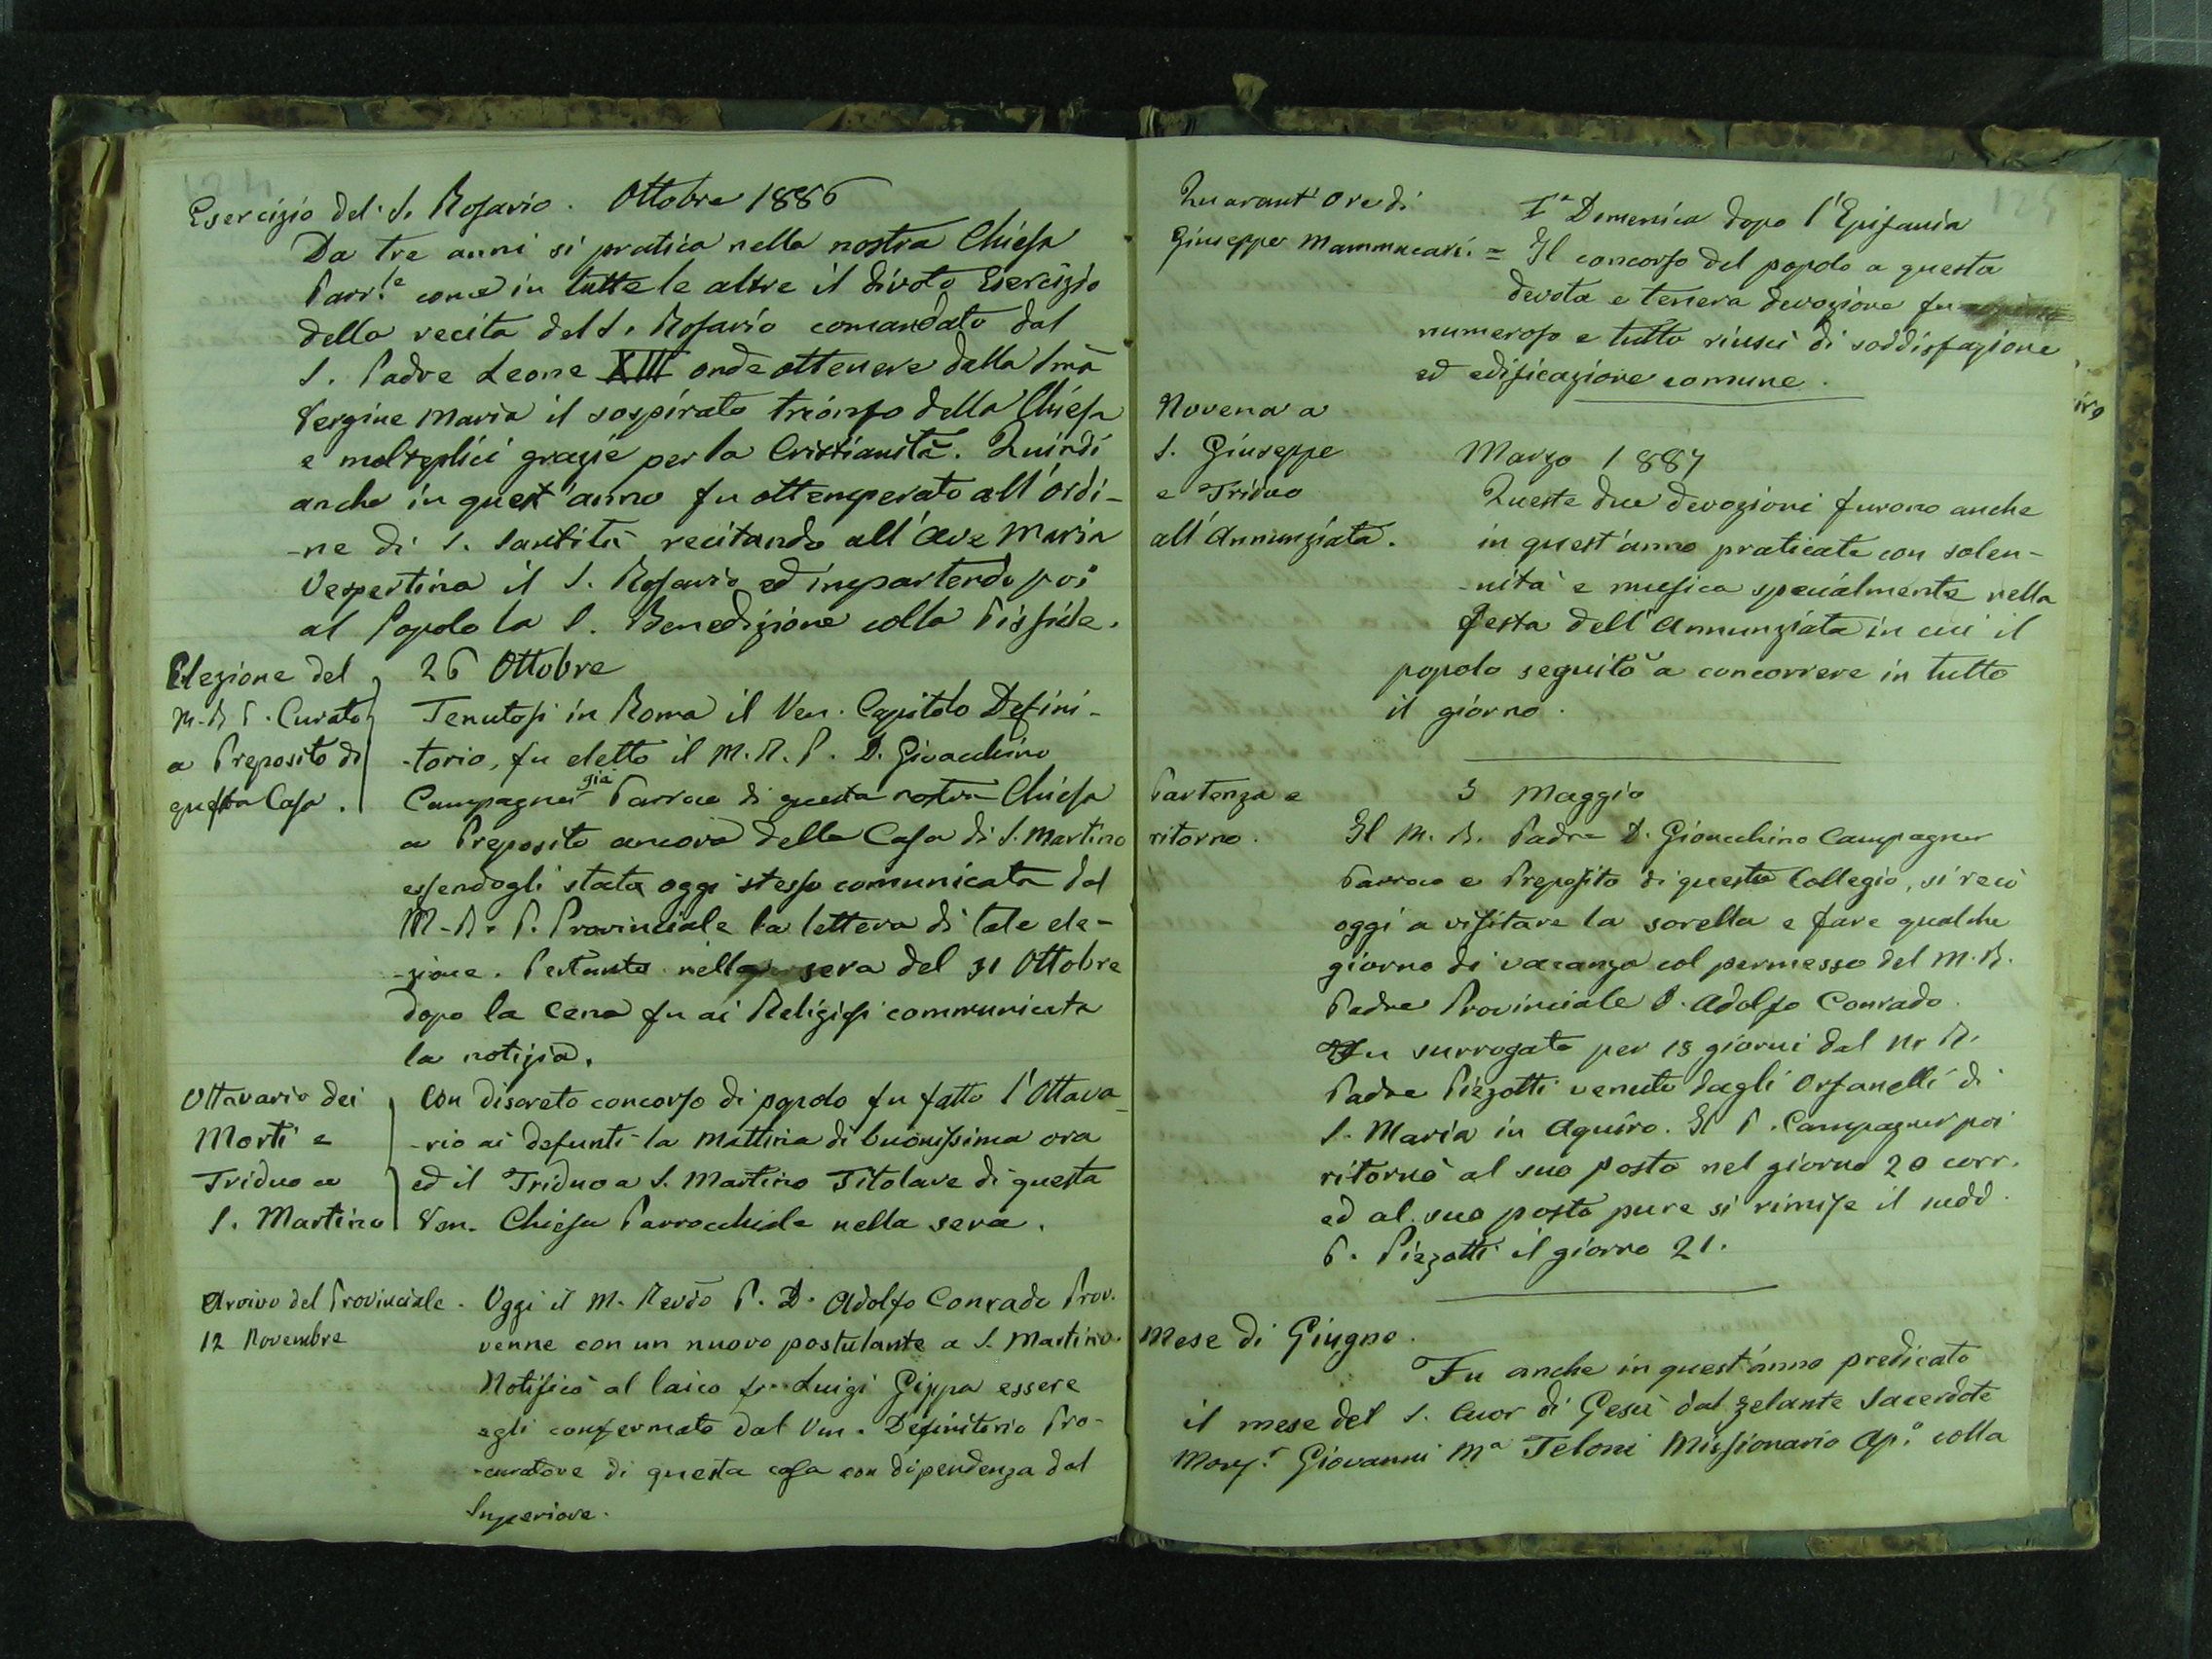 Esercizio del S. Rosario. Ottobre 1886
Da tre anni si pratica nella nostra Chiesa
Parr.le come in tutte le altre il divoto Esercizio
della recita del S. Rosario comandato dal
S. Padre Leone XIII onde ottenere dalla Sma
Vergine Maria il sospirato trionfo della Chiesa
e molteplici grazie per la Cristianità. Quindi
anche in quest'anno fu ottemperato all'ordi-
-ne di S. Santità recitando all'Ave Maria
Vespertina il S. Rosario ed impartendo poi
al Popolo la S. Benedizione colla Pisside.
Elezione del
M. R. P. Curato
a Preposito di
questa Casa.
26 Ottobre
Tenutosi in Roma il Ven. Capitolo Defini-
-torio, fu eletto il M. R. P. D. Gioacchino
Campagner già Parroco di questa nostra Chiesa
a Preposito ancora della Casa di S. Martino
essendogli stata oggi stesso comunicata dal
M. R. P. Provinciale la lettera di tale ele-
-zione. Pertanto nella sera del 31 Ottobre
dopo la Cena fu ai Religiosi communicata
la notizia.
Ottavario dei
Morti e
Triduo a
S. Martino
Con discreto concorso di popolo fu fatto l'Ottava-
-rio ai defunti la mattina di buonissima ora
ed il Triduo a S. Martino Titolare di questa
Ven. Chiesa Parrocchiale nella sera.
Arrivo del Provinciale.
12 Novembre
Oggi il M. Revdo P. D. Adolfo Conrado Prov.
venne con un nuovo postulante a S. Martino.
Notificò al laico fr. Luigi Gippa essere
egli confermato dal Ven. Definitorio Pro-
-curatore di questa casa con dipendenza dal
Superiore.
Quarant'Ore di
Giuseppe Mammucari. =
Ia Domenica dopo l'Epifania
Il concorso del popolo a questa
devota e tenera devozione fu
numeroso e tutto riuscì di soddisfazione
ed edificazione comune.
Novena a
S. Giuseppe
e Triduo
all'Annunziata.
Marzo 1887
Queste due devozioni furono anche
in quest'anno praticate con solen-
-nità e musica specialmente nella
festa dell'Annunziata in cui il
popolo seguitò a concorrere in tutto
il giorno.
Partenza e
ritorno.
3 Maggio
Il M. R. Padre D. Gioacchino Campagner
Parroco e Preposito di questo Collegio, si recò
oggi a visitare la sorella e fare qualche
giorno di vacanza col permesso del M. R.
Padre Provinciale D. Adolfo Conrado.
Fu surrogato per 18 giorni dal M. R.
Padre Pizzotti venuto dagli Orfanelli di
S. Maria in Aquiro. Il P. Campagner poi
ritornò al suo posto nel giorno 20 corr.
ed al suo posto pure si rimise il sudd.
P. Pizzotti il giorno 21.
Mese di Giugno.
Fu anche in quest'anno predicato
il mese del S. Cuor di Gesù dal zelante Sacerdote
Mons.r Giovanni Ma Teloni Missionario Ap.o colla